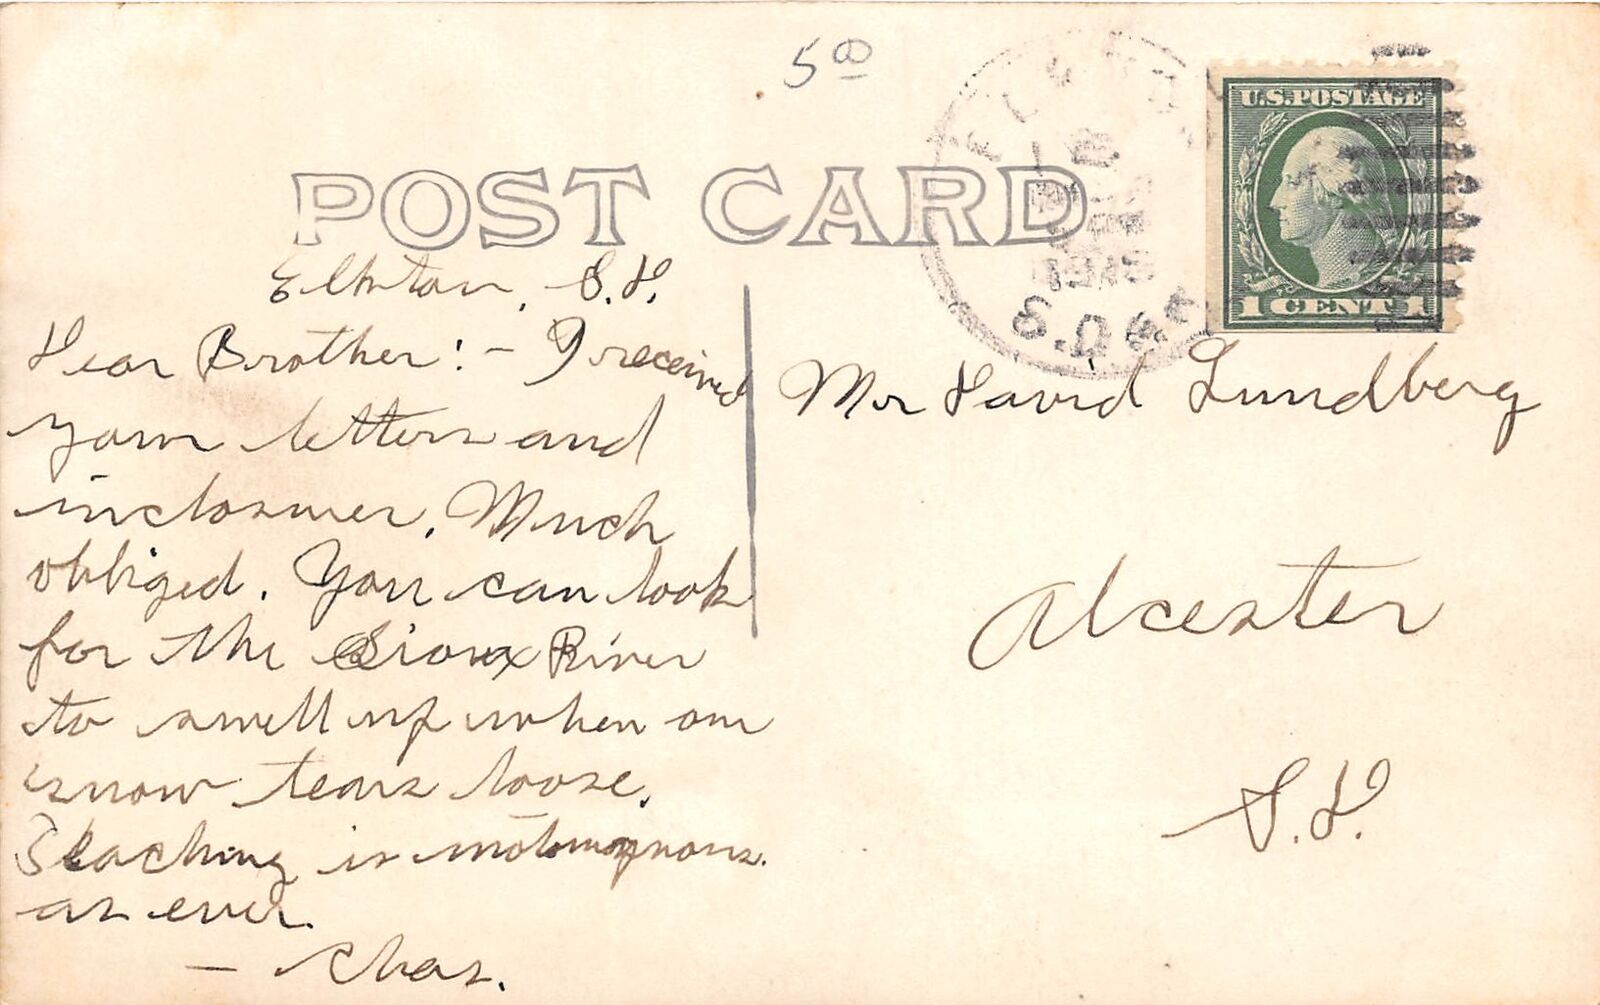 5 00
U.S. POSTAGE
1 CENT 1
S. DAK.
POST CARD
Elkton, S.D.
Dear Brother! - I received
your letters and
inclosures. Much
obliged. You can look
for the Sioux River
to swell up when our
snow tears loose.
Teaching is
as ever.
- Chas.
Mr David Lundberg
Alcester
S.D.